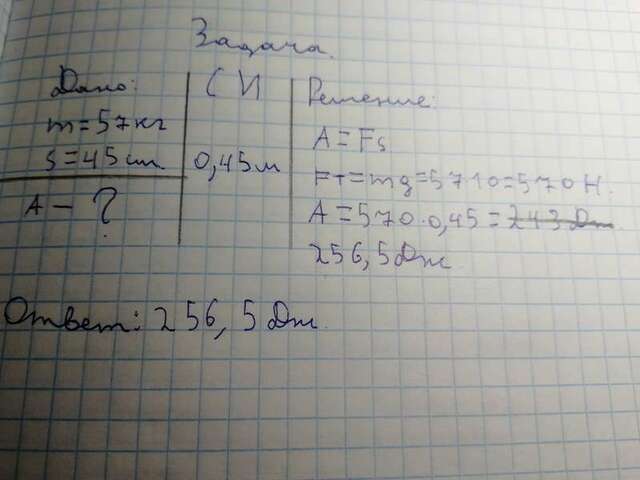 Задача.
Дано:
m=57кг
s=45см
A-?
СИ
0,45м
Решение:
A=Fs
Fт=mg=5710=570Н.
A=570·0,45=243Дж
256,5Дж
Ответ: 256,5Дж.